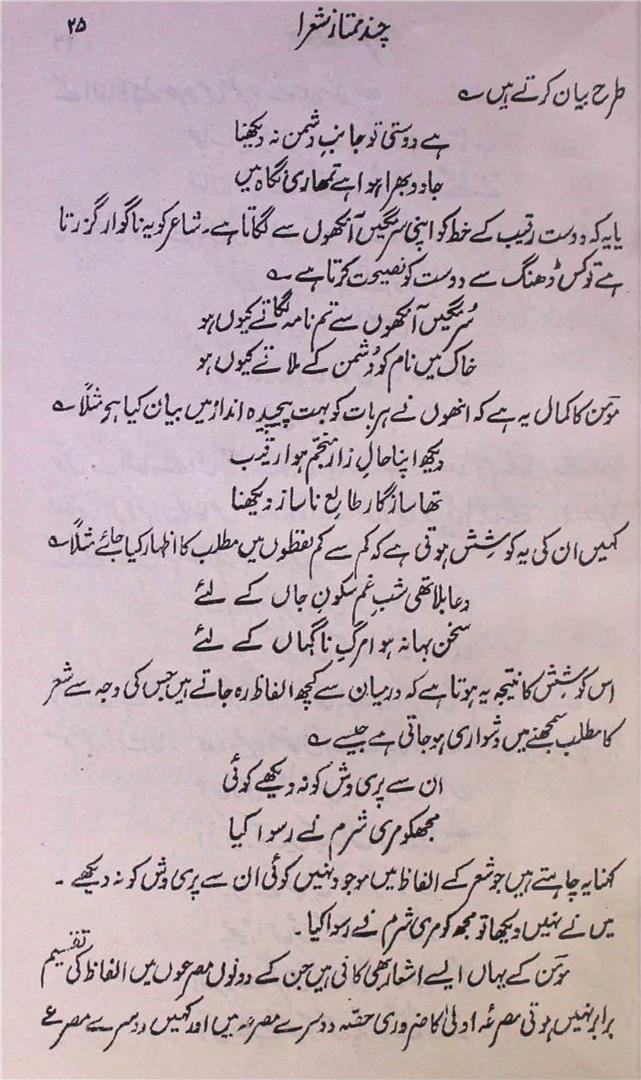 چند ممتاز شعرا ۲۵
طرح بیان کرتے ہیں ؎
ہے دوستی تو جانبِ دشمن نہ دیکھنا
جادو بھرا ہوا ہے تمھاری نگاہ میں
یا یہ کہ دوست رقیب کے خط کو اپنی سرمگیں آنکھوں سے لگاتا ہے۔ شاعر کو یہ ناگوار گزرتا
ہے تو کس ڈھنگ سے دوست کو نصیحت کرتا ہے ؎
سُرمگیں آنکھوں سے تم نامہ لگاتے کیوں ہو
خاک میں نام کو دُشمن کے ملاتے کیوں ہو
مومنؔ کا کمال یہ ہے کہ انھوں نے ہر بات کو بہت پیچیدہ انداز میں بیان کیا ہے مثلاً ؎
دیکھ اپنا حالِ زار منجّم ہوا رقیب
تھا سازگار طالعِ ناساز دیکھنا
کہیں ان کی یہ کوشِش ہوتی ہے کہ کم سے کم لفظوں میں مطلب کا اظہار کیا جائے مثلاً ؎
دعا بلا تھی شبِ غم سکونِ جاں کے لئے
سخن بہانہ ہوا مرگِ ناگہاں کے لئے
اس کوشِش کا نتیجہ یہ ہوتا ہے کہ درمیان سے کچھ الفاظ رہ جاتے ہیں جس کی وجہ سے شعر
کا مطلب سمجھنے میں دشواری ہوجاتی ہے جیسے ؎
ان سے پری وش کو نہ دیکھے کوئی
مجھکو مری شرم نے رسوا کیا
کہنا یہ چاہتے ہیں جو شعر کے الفاظ میں موجود نہیں کوئی ان سے پری وش کو نہ دیکھے ۔
میں نے نہیں دیکھا تو مجھ کو مری شرم نے رسوا کیا ۔
مومنؔ کے یہاں ایسے اشعار بھی کافی ہیں جن کے دونوں مصرعوں میں الفاظ کی تقسیم
برابر نہیں ہوتی مصرعۂ اولیٰ کا ضروری حصّہ دوسرے مصرعہ میں اور کہیں دوسرے مصرعے